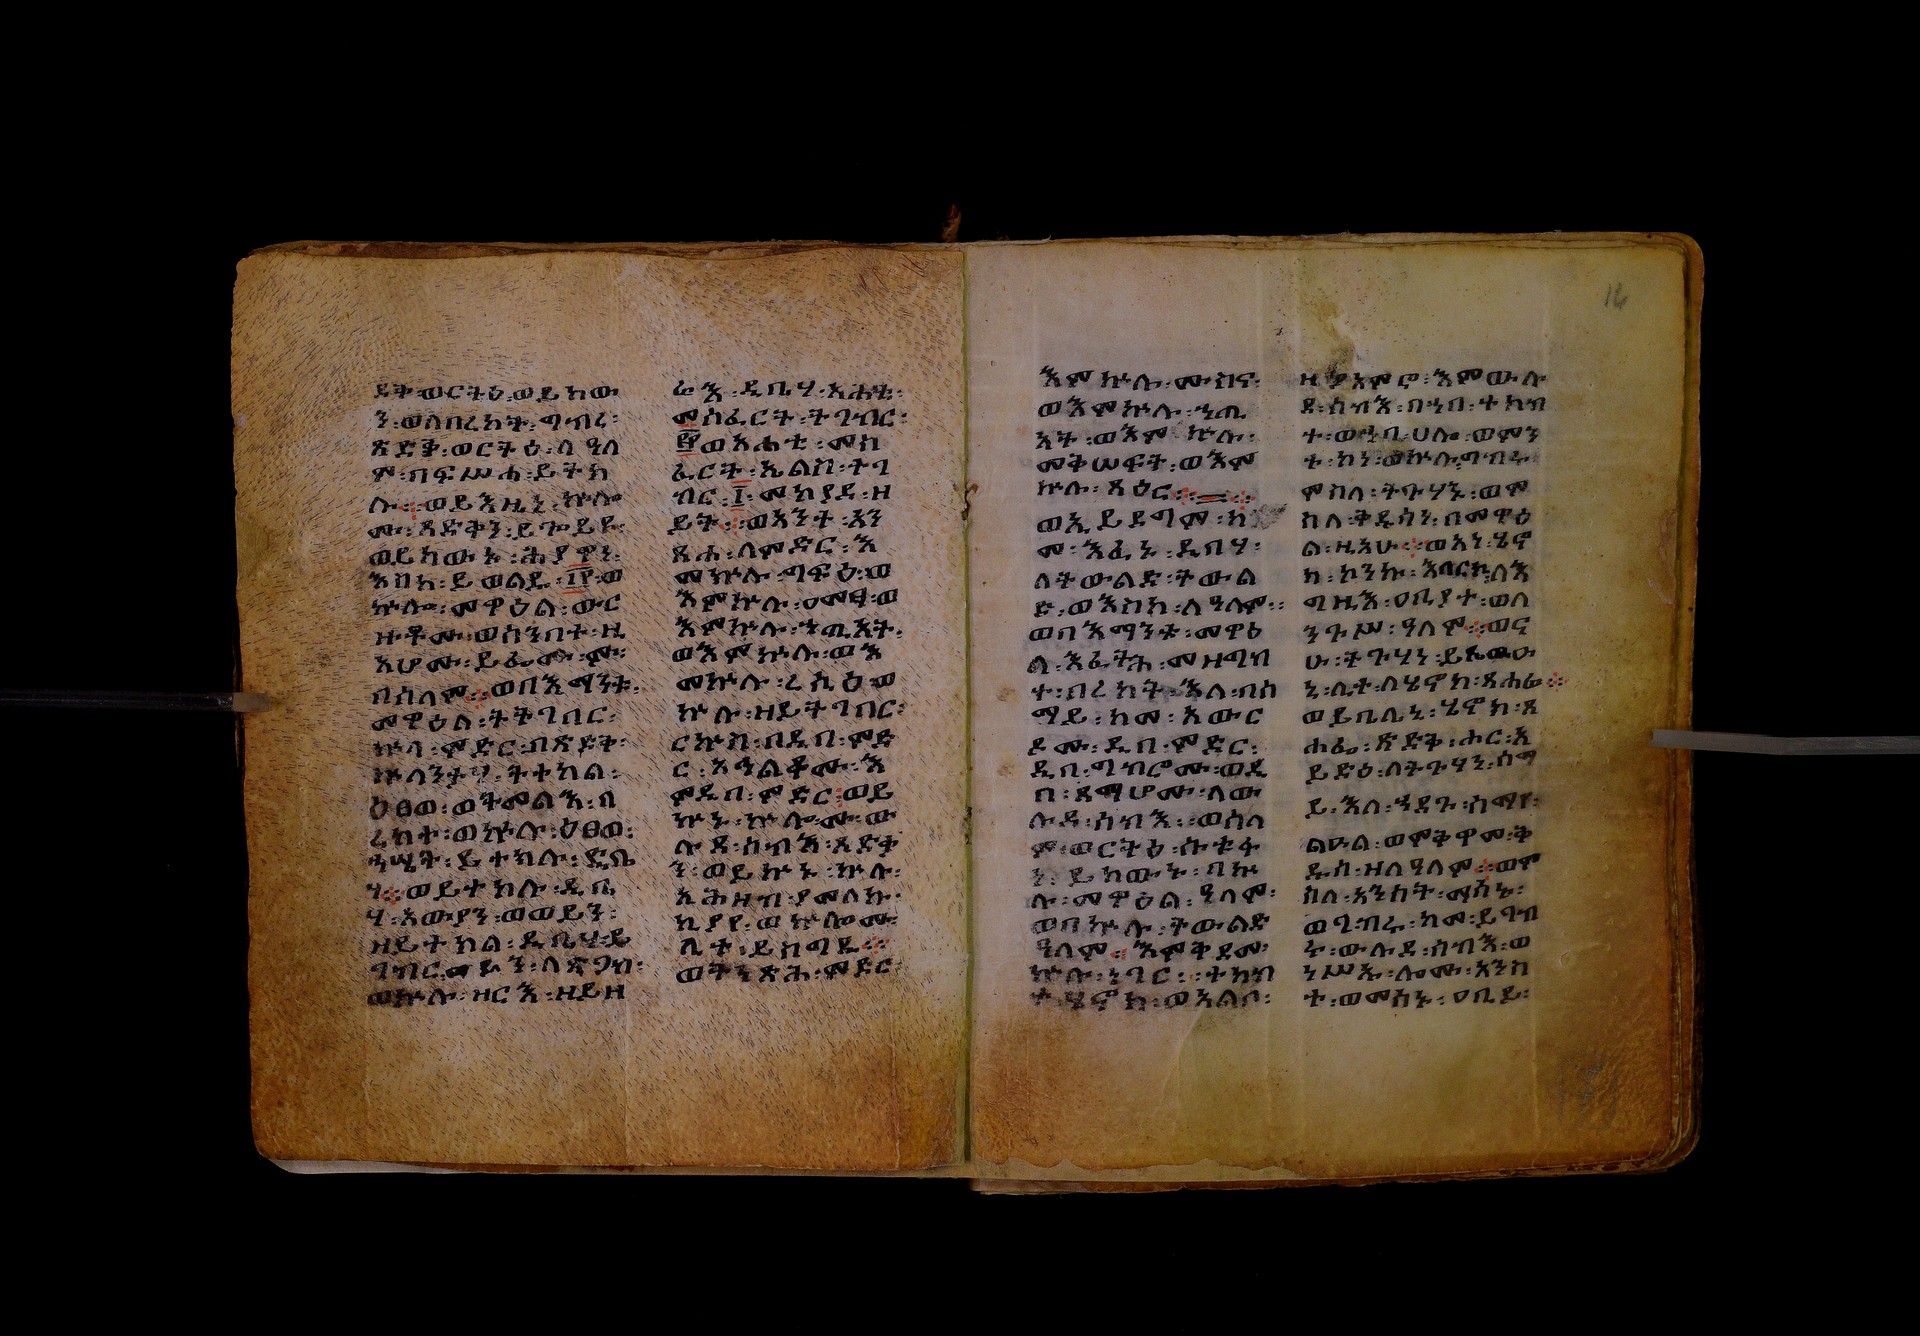 ደት፡ወርትዕ፡ወይከው
ን፡ወለበረከት፡ግብረ፡
ጽድቅ፡ወርትዕ፡ለዓለ
ም፡በፍሥሐ፡ይትክ
ሉ፡ወይእዜኒ፡ኵሎ
ሙ፡ጻድቃን፡
ወይከውኑ፡ሕያዋነ፡
እስከ፡ይወልዱ፡፲፻፡ወ
ኵሎ፡መዋዕል፡ውር
ዙቶሙ፡ወሰንበተ፡ዚ
አሆሙ፡ይፌጽሙ፡
በሰላም፡ወበእማንቱ፡
መዋዕል፡ትትገበር፡
ኵላ፡ምድር፡በጽድቅ፡
ኵለንታሃ፡ትተከል፡
ዕፀወ፡ወትመልእ፡በ
ረከተ፡ወኵሉ፡ዕፀወ፡
ኃሤት፡ይተክሉ፡ዲቤ
ሃ፡ወይተክሉ፡ዲቤ
ሃ፡አውያነ፡ወወይን፡
ዘይተከል፡ዲቤሃ፡ይ
ገብር፡ወይነ፡ለጽጋብ፡
ወኵሉ፡ዘርእ፡ዘይዘ
ራእ፡ዲቤሃ፡አሐቲ፡
መስፈርት፡ትገብር፡
፼ወአሐቲ፡መስ
ፈርት፡ኤልስ፡ትገ
ብር፡፲፡መክየደ፡ዘ
ይት፡ወአንተ፡አን
ጽሐ፡ለምድር፡እ
መኵሉ፡ግፍዕ፡ወ
እምኵሉ፡ዐመፃ፡ወ
እምኵሉ፡ኀጢአት፡
ወእምኵሉ፡ወእ
መኵሉ፡ረሲዕ፡ወ
ኵሉ፡ዘይትገበር፡
ርኵስ፡በዲበ፡ምድ
ር፡አኅልቆሙ፡እ
ምዲበ፡ምድር፡ወይ
ኵኑ፡ኵሎሙ፡ው
ሉደ፡ሰብእ፡ጻድቃ
ነ፡ወይኵኑ፡ኵሉ፡
አሕዛብ፡ያመልኩ፡
ኪያየ፡ወኵሎሙ፡
ሊተ፡ይሰግዱ፡
ወትነጽሕ፡ምድር
እምኵሉ፡ሙስና፡
ወእምኵሉ፡ኀጢ
አት፡ወእምኵሉ፡
መቅሠፍት፡ወእም
ኵሉ፡ጻዕር፡
ወኢይደግም፡ከ
መ፡እፈኑ፡ዲቤሃ፡
ለትውልድ፡ትውል
ድ፡ወእስከ፡ለዓለም፡
ወበእማንቱ፡መዋዕ
ል፡እፈትሕ፡መዛግብ
ተ፡በረከት፡እለ፡በሰ
ማይ፡ከመ፡አውር
ዶሙ፡ዲበ፡ምድር፡
ዲበ፡ግብሮሙ፡ወዲ
በ፡ጻማሆሙ፡ለው
ሉደ፡ሰብእ፡ወሰላ
ም፡ወርትዕ፡ሱቱፋ
ነ፡ይከውኑ፡በኵ
ሉ፡መዋዕል፡ዓለም፡
ወበኵሉ፡ትውልድ
ዓለም፡እምቅደመ፡
ኵሉ፡ነገር፡ተከብ
ተ፡ሄኖክ፡ወአልቦ፡
ዘያአምሮ፡እምውሉ
ደ፡ሰብእ፡በኀበ፡ተከብ
ተ፡ወኀበ፡ሀሎ፡ወምን
ተ፡ኮነ፡ወኵሉ፡ግብሩ፡
ምስለ፡ትጉሃን፡ወም
ስለ፡ቅዱሳን፡በመዋዕ
ል፡ዚአሁ፡ወአነ፡ሄኖ
ክ፡ኮንኩ፡እባርክ፡ለእ
ግዚእ፡ዐቢየ፡ወለ
ንጉሥ፡ዓለም፡ወና
ሁ፡ትጉሃን፡ይጼውዑ
ኒ፡ሊተ፡ለሄኖክ፡ጸሐፊ፡
ወይቤሊኒ፡ሄኖክ፡ጸ
ሐፌ፡ጽድቅ፡ሑር፡አ
ይድዕ፡ለትጉሃን፡ሰማ
ይ፡እለ፡ኀደጉ፡ሰማየ፡
ልዑል፡ወምቅዋመ፡ቅ
ዱስ፡ዘለዓለም፡ወም
ስለ፡አንስት፡ማሰኑ፡
ወገብሩ፡ከመ፡ይገብ
ሩ፡ውሉደ፡ሰብእ፡ወ
ነሥኡ፡ሎሙ፡አንስ
ተ፡ወመሰኑ፡ዐቢይ፡